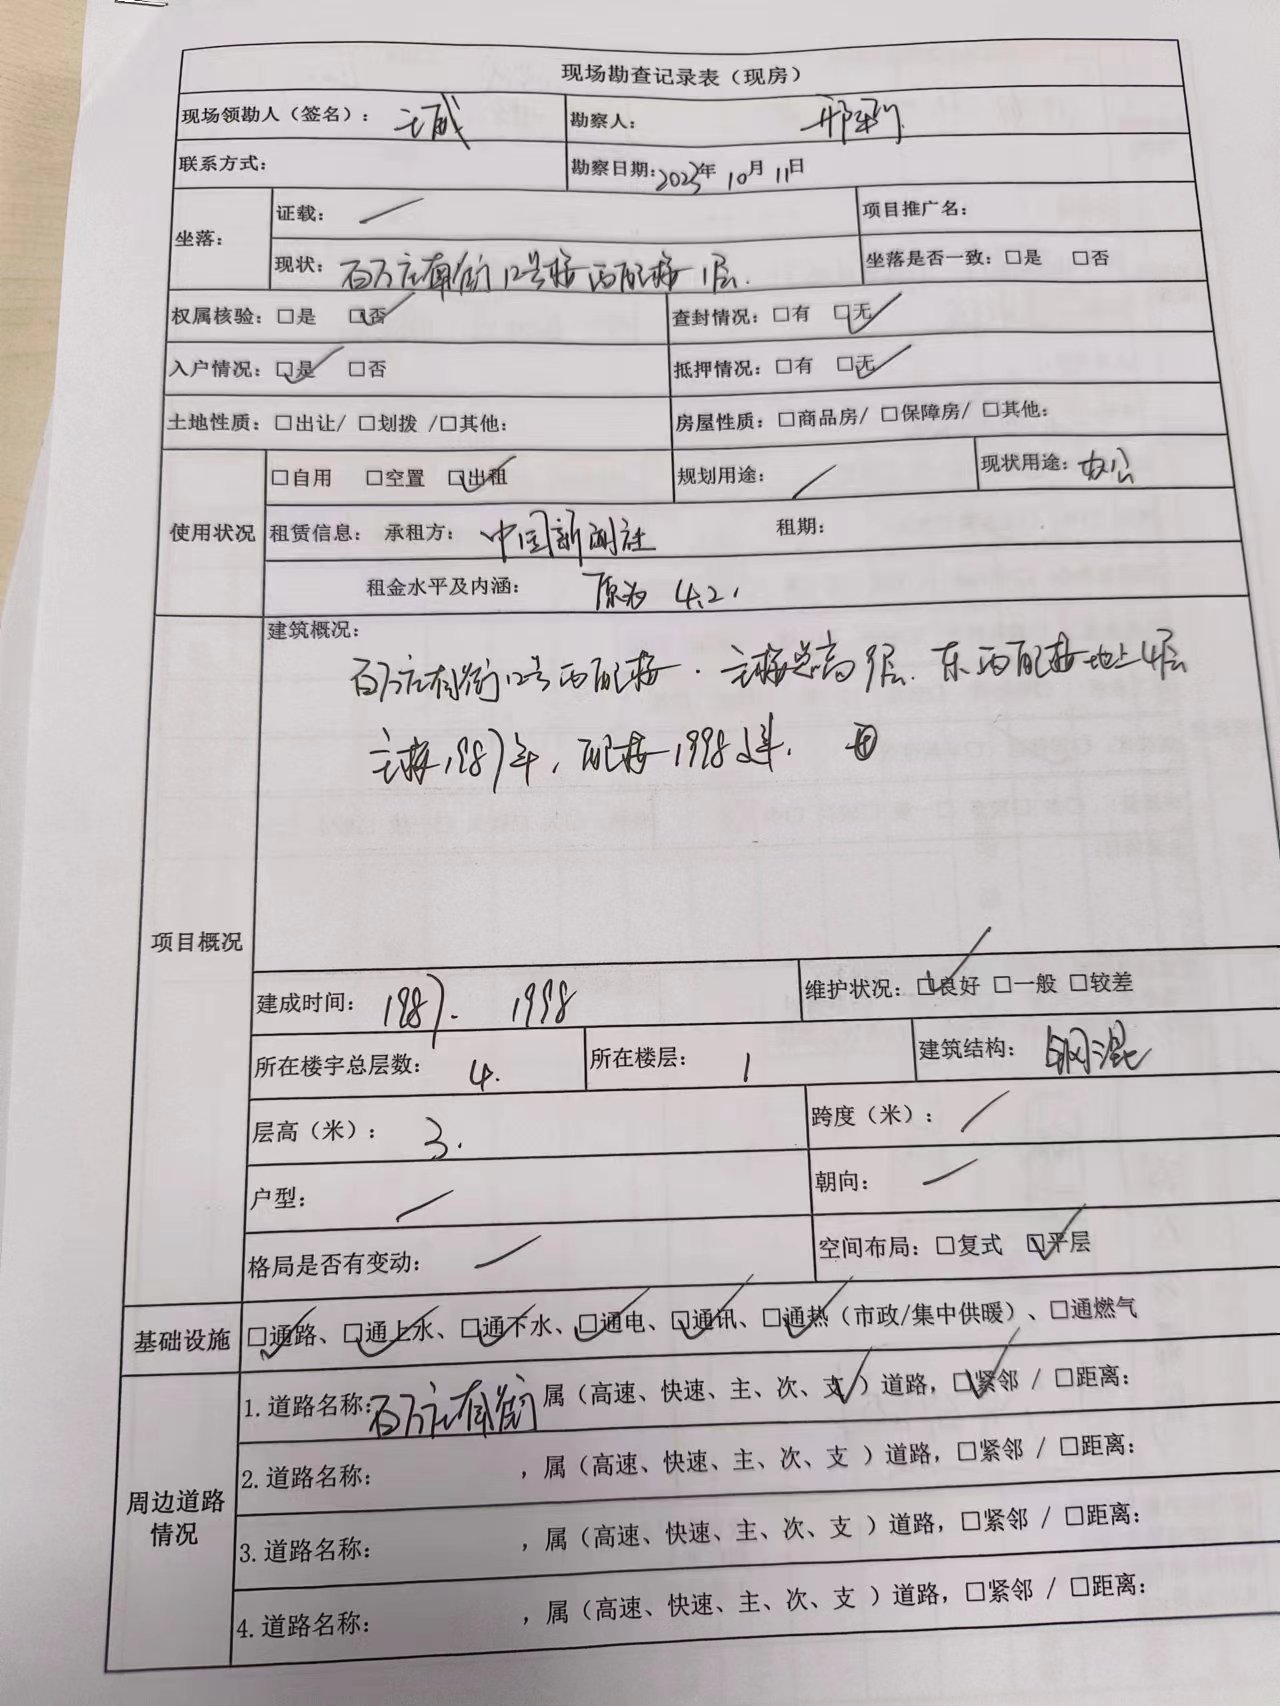 现场勘查记录表（现房）
现场领勘人（签名）： 勘察人：
联系方式： 勘察日期：2023年10月11日
坐落： 证载：／ 项目推广名：
现状：百万庄南街12号楼西配楼1层. 坐落是否一致：□是 □否
权属核验：□是 ☑否 查封情况：□有 ☑无
入户情况：☑是 □否 抵押情况：□有 ☑无
土地性质：□出让/ □划拨 /□其他： 房屋性质：□商品房/ □保障房/ □其他：
使用状况 □自用 □空置 ☑出租 规划用途：／ 现状用途：办公
租赁信息： 承租方：中国新闻社 租期：
租金水平及内涵：原为 4.2.
项目概况 建筑概况：
百万庄南街12号西配楼. 主楼总高9层. 东西配楼地上4层
主楼1987年, 配楼1998建.
建成时间：1987. 1998 维护状况：☑良好 □一般 □较差
所在楼宇总层数：4. 所在楼层：1 建筑结构：钢混
层高（米）：3. 跨度（米）：／
户型：／ 朝向：／
格局是否有变动：／ 空间布局：□复式 ☑平层
基础设施 ☑通路、☑通上水、☑通下水、☑通电、☑通讯、☑通热（市政/集中供暖）、□通燃气
周边道路情况 1.道路名称：百万庄南街 属（高速、快速、主、次、支✓）道路，☑紧邻 / □距离：
2.道路名称： ，属（高速、快速、主、次、支 ）道路，□紧邻 / □距离：
3.道路名称： ，属（高速、快速、主、次、支 ）道路，□紧邻 / □距离：
4.道路名称： ，属（高速、快速、主、次、支 ）道路，□紧邻 / □距离：